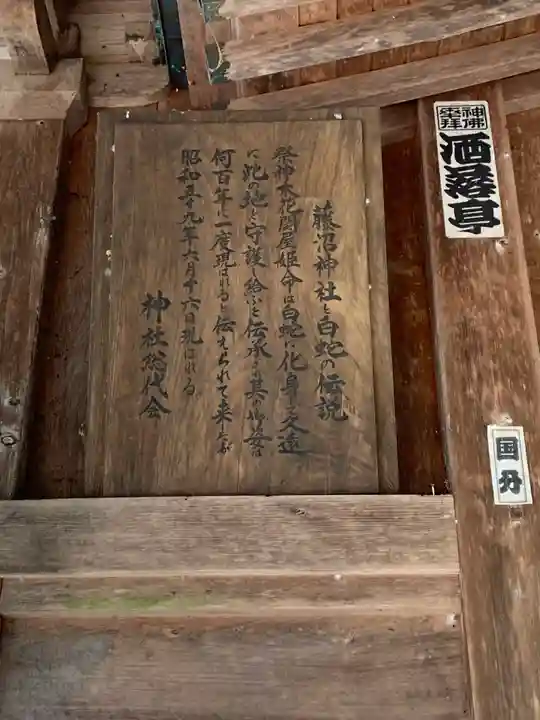 藤沼神社と白蛇の伝説
祭神木花開屋姫命は白蛇に化身し久遠
に此の地を守護し給ふと伝承され其の御姿は
何百年に一度現はれると伝えられて来たが
昭和五十九年六月十六日現はれる
神社総代会
神佛
奉拝
洒落亭
国丹